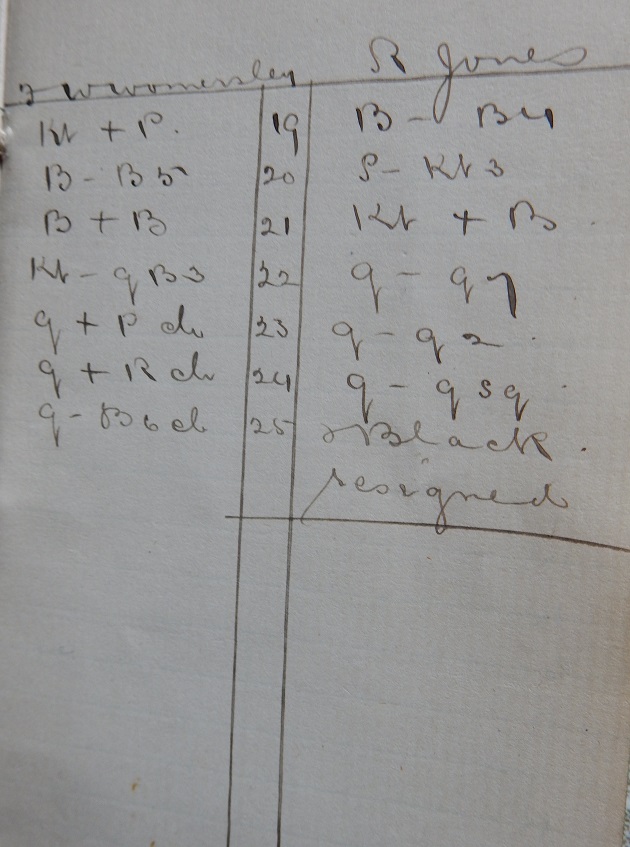 J W Womersley R Jones
Kt + P. 19 B - B4
B - B5 20 P - Kt3
B + B 21 Kt + B.
Kt - q B3 22 q - q
q + P ch 23 q - q 2.
q + R ch 24 q - q sq.
q - B6 ch 25 Black.
resigned